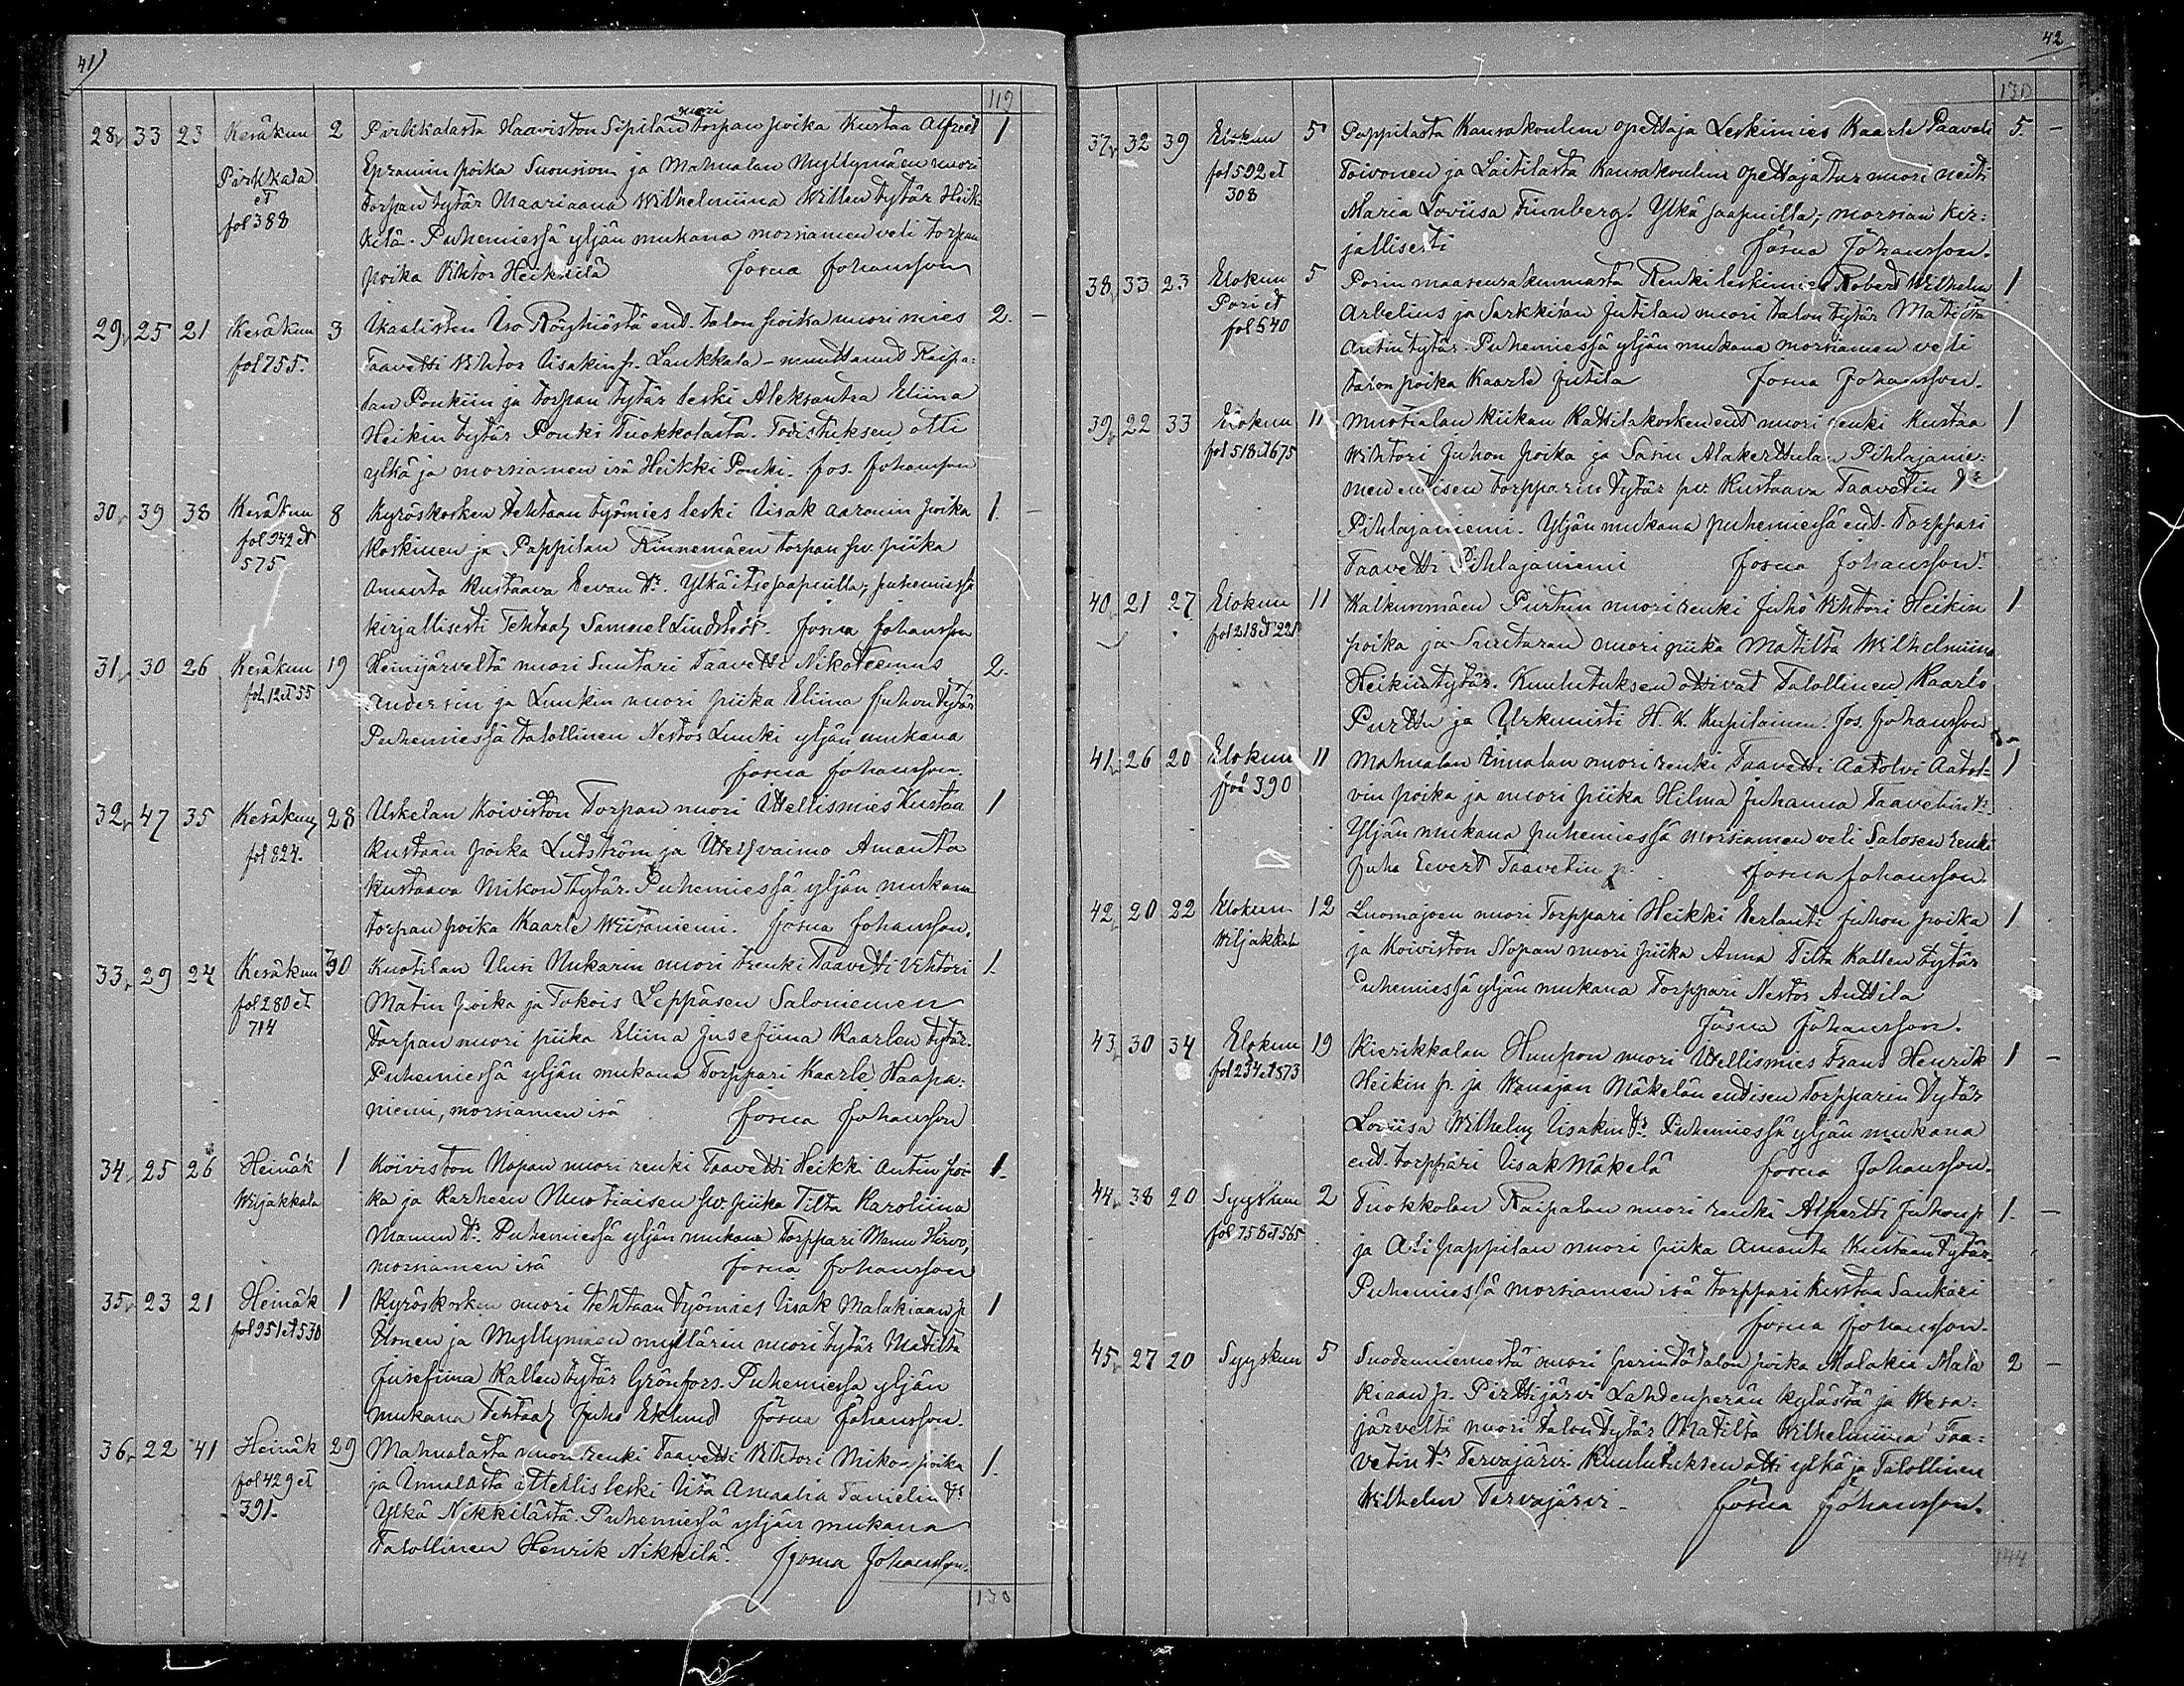 41)
119
28 33 23 Kesäkuu 2 Pirkkalasta Haaviston Sipilän nuori torpan poika Kustaa Alfred 1
Pirkkala et Epramin poika Suonsivu ja Mahnalan Myllymäen nuori
fol 388 torpan tytär Maariaana Wilhelmiina Willen tytär Heik-
kilä. Puhemiessä yljän mukana morsiamen veli torpan
poika Vihtor Heikkilä Josua Johansson
29 25 21 Kesäkuu 3 Ikaalisten Iso Röyhiöstä ent. talon poika nuori mies 2. —
fol 755. Taavetti Vihtor Iisakin p. Laukkala – muuttanut Raipa-
lan Ponkiin ja torpan tytär leski Aleksantra Eliina
Heikin tytär Ponki Tuokkolasta. Todistuksen otti
ylkä ja morsiamen isä Heikki Ponki. Jos. Johansson
30 39 38 Kesäkuu 8 Kyröskosken Tehtaan työmies leski Iisak Aaronin poika 1. —
fol 942 et Koskinen ja Pappilan Rinnemäen torpan piika
575 Amanta Kustaava Eevan tr. Ylkä itse saapuilla, puhemiessä
kirjallisesti Tehtaal. Samuel Lindström. Josua Johansson
31 30 26 Kesäkuu 19 Heinijärveltä nuori Suutari Taavetti Nikoteemus 2.
fol. 12 et 55 Andersin ja Lunkin nuori piika Eliina Juhon tytär
Puhemiessä talollinen Nestor Lunki yljän mukana
Josua Johansson.
32 47 35 Kesäkuu 28 Uskelan Koiviston Torpan nuori Itellismies Kustaa 1
fol 824. Kustaan poika Lutström ja Itels vaimo Amanta
Kustaava Mikon tytär. Puhemiessä yljän mukana
torpan poika Kaarle Wiitaniemi. Josua Johansson.
33 29 24 Kesäkuu 30 Kuotilan Uusi Mukarin nuori trenki Taavetti Vihtori 1.
fol 280 et Matin poika ja Tokois Leppäsen Saloniemen
714 Torpan nuori piika Eliina Jusefiina Kaarlen tytär.
Puhemiessä yljän mukana Torppari Kaarle Haapa-
niemi, morsiamen isä Josua Johansson
34 25 26 Heinäk 1 Koiviston Nopan nuori renki Taavetti Heikki Antin poi- 1.
Wiljakkala ka ja Karheen Muotiaisen piika Tilta Karoliina
Manun tr. Puhemiessä yljän mukana Torppari Manu Hirvo,
morsiamen isä Josua Johansson
35 23 21 Heinäk 1 Kyröskosken nuori tehtaan työmies Iisak Malakiaan p. 1
fol 951 et 530 Ilonen ja Myllymäen myllärin nuori tytär Matilta
Jusefiina Kallen tytär Grönfors. Puhemiessä yljän
mukana Tehtaal. Juho Eklund Josua Johansson.
36 22 41 Heinäk 29 Mahnalasta nuori renki Taavetti Vihtori Mikon poika 1.
fol 429 et ja Innalasta ittellis leski Iita Amaalia Tanielin tr
391. Ylkä Nikkilästä. Puhemiessä yljän mukana
Talollinen Henrik Nikkilä. Josua Johansson.
130
42
130
37 32 39 Elokuu 5 Pappilasta Kansakoulun opettaja Leskimies Kaarle Paavali 5. —
fol 592 et Toivonen ja Laitilasta Kansakoulun opettajatar nuori neiti
308 Maria Loviisa Finnberg. Ylkä saapuilla, morsian kir-
jallisesti Josua Johansson.
38 33 23 Elokuu 5 Porin maaseurakunnasta Renki leskimies Robert Wilhelm 1
Pori et Arbelius ja Sarkkilan Jutilan nuori talon tytär Matilta
fol 640 Antin tytär. Puhemiessä yljän mukana morsiamen veli
talon poika Kaarle Jutila Josua Johansson.
39 22 33 Elokuu 11 Muotialan Kiikan Kattilakosken ent nuori renki Kustaa 1
fol 518 et 675 Wihtori Juhon poika ja Sasin Alakerttulan Pihlajanie-
men entisen torpparin tytär Kustaava Taavetin tr
Pihlajaniemi. Yljän mukana puhemiessä ent. Torppari
Taavetti Pihlajaniemi Josua Johansson.
40 21 27 Elokuu 11 Kalkunmäen Purtun nuori renki Juho Vihtori Heikin 1
fol 218 et 221 poika ja Suutaran nuori piika Matilta Wilhelmiina
Heikin tytär. Kuulutuksen ottivat Talollinen Kaarlo
Purttu ja Urkunisti H. K. Kupilainen Jos. Johansson
41 26 20 Elokuu 11 Mahnalan Einalan nuori renki Taavetti Aatolvi Aatol- 1
fol 390 vin poika ja nuori piika Hilma Juhanna Taavetin tr.
Yljän mukana puhemiessä morsiamen veli Salosen renki
Juha Eevert Taavetin p. Josua Johansson.
42 20 22 Elokuu 12 Luomajoen nuori Torppari Heikki Eerlanti Juhon poika 1
Wiljakkala ja Koiviston Nopan nuori piika Anna Tilta Kallen tytär
Puhemiessä yljän mukana Torppari Nestor Anttila
Josua Johansson.
43 30 34 Elokuu 19 Kierikkalan Huupon nuori Itellismies Frans Henrik 1 —
fol 234 et 573 Heikin p. ja Wanajan Mäkelän entisen Torpparin Tytär
Loviisa Wilhelm. Iisakin tr. Puhemiessä yljän mukana
ent. torppari Iisak Mäkelä Josua Johansson.
44 38 20 Syyskuu 2 Tuokkolan Raipalan nuori renki Alpertti Juhon p 1. —
fol 758 et 565 ja Ali pappilan nuori piika Amanta Kustaan tytär
Puhemiessä morsiamen isä torppari Kustaa Sankari
Josua Johansson.
45 27 20 Syyskuu 5 Suodenniemestä nuori perintötalon poika Malakia Mala- 2 —
kiaan p. Pirttijärvi Lahdenperän kylästä ja Wesa-
järveltä nuori talon tytär Matilta Wilhelmiina Taa-
vetin tr Tervajärvi Kuulutuksen otti ylkä ja Talollinen
Wilhelm Tervajärvi. Josua Johansson.
144